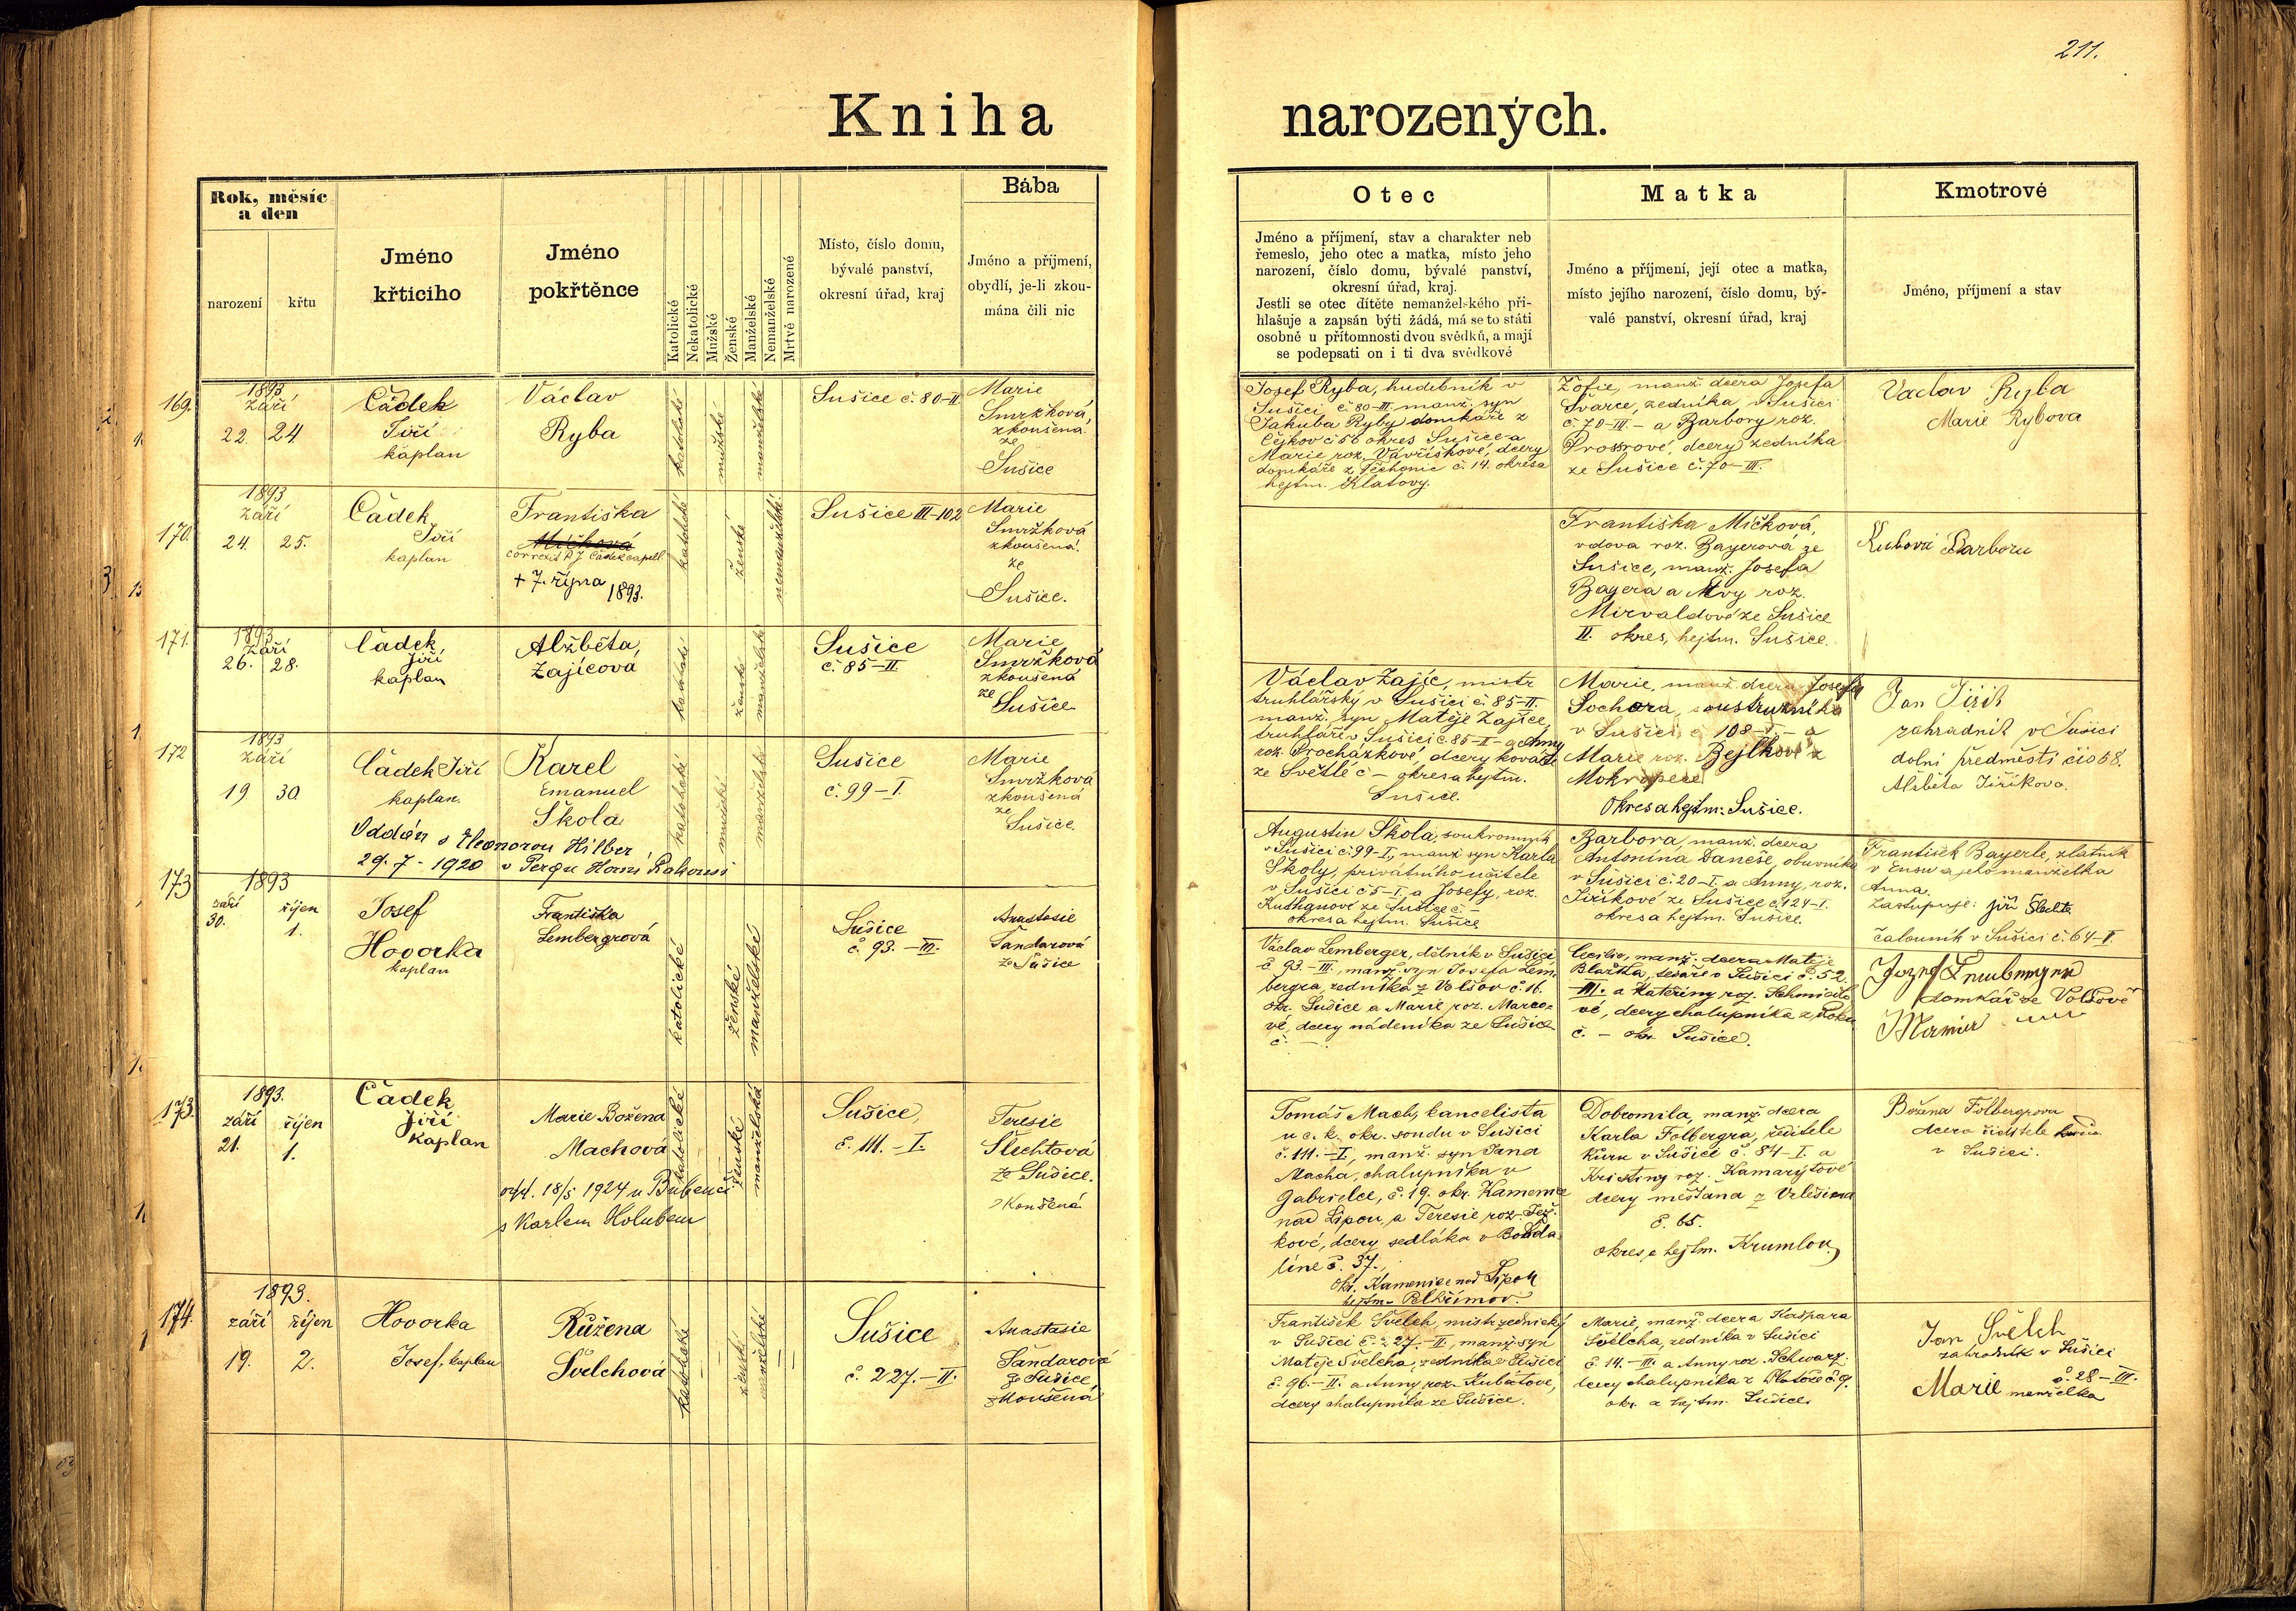 211.
Kniha narozených.
Rok, měsíc
a den
narození
křtu
Jméno
křticího
Jméno
pokřtěnce
Katolické
Nekatolické
Mužské
Ženské
Manželské
Nemanželské
Mrtvě narozené
Místo, číslo domu,
bývalé panství,
okresní úřad, kraj
Bába
Jméno a příjmení,
obydlí, je-li zkou-
mána čili nic
Otec
Jméno a příjmení, stav a charakter neb
řemeslo, jeho otec a matka, místo jeho
narození, číslo domu, bývalé panství,
okresní úřad, kraj.
Jestli se otec dítěte nemanželského při-
hlašuje a zapsán býti žádá, má se to státi
osobně u přítomnosti dvou svědků, a mají
se podepsati on i ti dva svědkové
Matka
Jméno a příjmení, její otec a matka,
místo jejího narození, číslo domu, bý-
valé panství, okresní úřad, kraj
Kmotrové
Jméno, příjmení a stav
169.
1893
září
22. 24
Čádek
Jiří
kaplan
Václav
Ryba
katolické
mužské
manželské
Sušice č. 80-II
Marie
Smržková,
zkoušená
ze
Sušice
Josef Ryba, hudebník v
Sušici č. 80-III. manž. syn
Jakuba Ryby domkáře z
Čejkov č 56 okres Sušice a
Marie roz. Vavříškové, dcery
domkáře z Těchonic č. 14. okresa
hejtm. Klatovy.
Žofie, manž. dcera Josefa
Švarce, zedníka v Sušici
č. 70-III- a Barbory roz.
dcery zedníka
ze Sušice č. 70-III.
Vaclav Ryba
Marie Rybova
170.
1893
září
24. 25.
Čádek
Jiří
kaplan
Františka
Míčková
correxit P. J. Čádek capell.
+ 7. října 1893.
katolické
ženské
nemanželské
Sušice III-102
Marie
Smržková
zkoušená
ze
Sušice.
Františka Míčková,
vdova roz. Bayerová ze
Sušice, manž. Josefa
Bayera a Evy roz.
Mirvaldové ze Sušice
II. okres, hejtm. Sušice.
Barboru
171.
1893
Září
26. 28.
Čádek
Jiří,
kaplan
Alžběta,
Zajícova
katolické
ženské
manželské
Sušice
č. 85-II
Marie
Smržková
zkoušená
ze
Sušice
Václav Zajíc, mistr
truhlářský v Sušici č. 85-II.
manž. syn Matěje Zajíce,
truhláři v Sušici č. 85-II- a Anny
roz. Procházkové, dcery kováře
ze Světlé č - okres a hejtm.
Sušice.
Marie, manž. dcera Josefa
Sochora, soustružníka
v Sušici č 108-I- a
Marie roz. Bejlkové z
Okres a hejtm. Sušice.
Jan Jiřik
zahradnik v Sušici
dolní předměstí čis 68.
Alžběta Jiříkova.
172
1893
Září
19 30.
Čádek Jiří
kaplan.
Karel
Emanuel
Škola
katolické
mužské
manželské
Oddán s Eleonorou Hilber
29. 7 - 1920 v Pergu Horní Rakousi
Sušice
č. 99-I.
Marie
Smržková
zkoušená
ze
Sušice.
Augustin Škola, soukromník
v Sušici č. 99-I., manž. syn Karla
Školy, privátního učitele
v Sušici č 5-I. a Josefy, roz.
ze Sušice č. -
okres a hejtm. Sušice
Barbora, manž. dcera
Antonína Daneše, obuvníka
v Sušici č. 20-I. a Anny, roz.
Jiříkové ze Sušice č. 124-I.
okres a hejtm. Sušice.
František Bayerle, zlatník
v Ensu a jeho manželka
Anna.
Zastupuje: Jiří Šlechta
čalouník v Sušici č. 64-I.
173
1893
září říjen
30. 1.
Josef
Hovorka
kaplan
Františka
Lembergrová
katolické
ženské
manželské
Sušice
č. 93. - III.
Anastasie
Šandarová
ze Sušice
Václav Lemberger, dělník v Sušici,
č. 93.-III., manž. syn Josefa Lem-
bergra, zedníka z Volšov č. 16.
okr. Sušice a Marie roz. Marco-
vé, dcery nádeníka ze Sušice
č. -
Cecilie, manž. dcera Matěje
Blažka, tesaře v Sušici č. 52.
III. a Kateřiny roz.
vé, dcery chalupníka z
č. - okr. Sušice.
Jozef
domkář ze Volšově
173.
1893.
září říjen
21. 1.
Čádek
Jiří
kaplan
Marie Božena
Machová
katolické
ženské
manželské
odd. 18/5 1924 v Bubenči
s Karlem Holubem
Sušice,
č. 111. - I.
Teresie
Šlechtová
ze Sušice.
zkoušená
Tomáš Mach, kancelista
u c. k. okr. soudu v Sušici
č. 111. - I., manž. syn Jana
Macha, chalupníka v
Gabrielce, č. 19. okr. Kamenice
nad Lipou, a Teresie roz. Jež-
kové, dcery sedláka v Bohda-
líně č. 37.,
okr. Kamenice nad Lipou
hejtm. Pelhřimov.
Dobromila, manž. dcera
Karla Folbergra, ředitele
kůru v Sušici č. 84-I. a
Kristiny roz. Kamarýtové
dcery měšťana z Velešína
č. 65.
okres a hejtm. Krumlov.
Božena Folbergrova
dcera ředitele kůru
v Sušici.
174.
1893.
září říjen
19. 2.
Hovorka
Josef, kaplan
Růžena
Švelchová
katolické
ženské
manželské
Sušice
č. 227. - II.
Anastasie
Šandarová
ze Sušice,
zkoušená
František Švelch, mistr zednický
v Sušici č. 227.-II, manž. syn
Matěje Švelcha, zedníka v Sušici
č. 96.-II. a Anny roz. Kubátové,
dcery chalupníka ze Sušice.
Marie, manž. dcera Kašpara
Švelcha, zedníka v Sušici
č 14.-III. a Anny roz. Schwarz.
dcery chalupníka z č 9.
okr. a hejtm. Sušice
Jan Švelch
zahradník v Sušici
č. 28-III.
Marie manželka